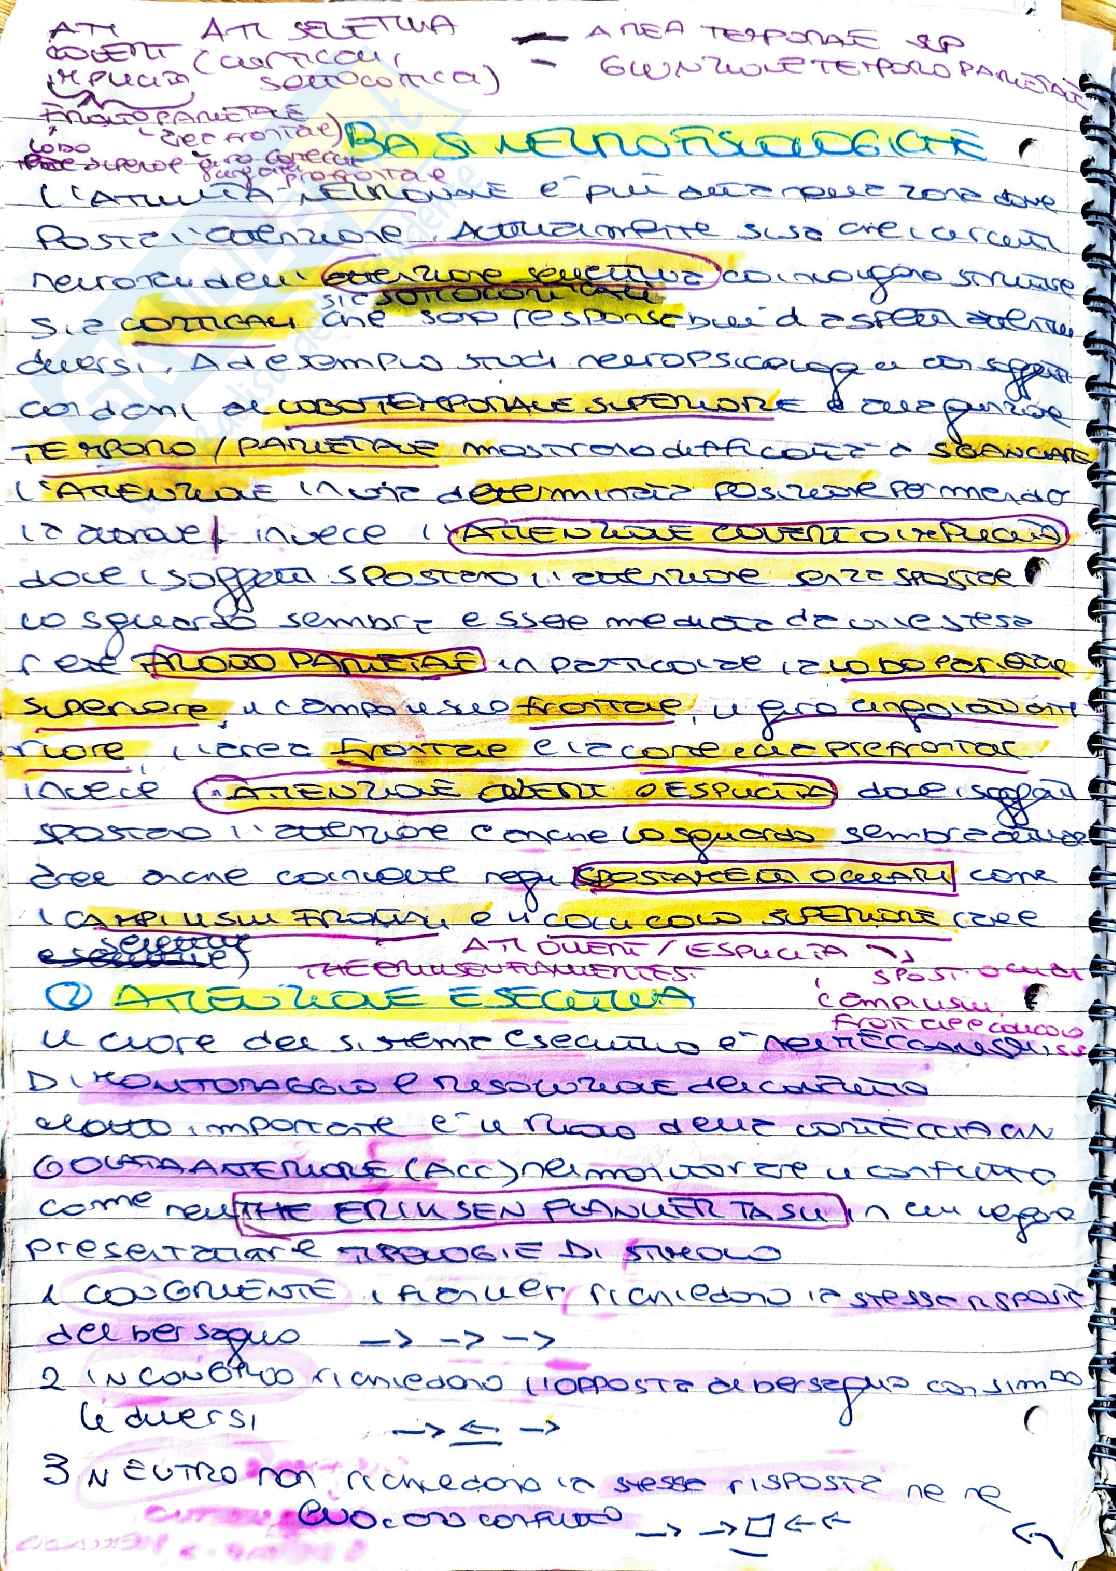 ATT ATT SELETTIVA — AREA TEMPORALE SUP
COVERT (CORTICALI, - GIUNZIONE TEMPORO PARIETALE
IMPLICITA SOTTOCORTICA)
FRONTOPARIETALE
LOBO (aree frontali)
superiore giro cingolato
prefrontale
BASI NEUROFISIOLOGICHE
L'ATTIVITÀ NEURONALE è più alta nella zona dove
Posta l'attenzione. Attualmente si sa che i circuiti
neuronali dell'attenzione selettiva coinvolgono strutture
sia SOTTOCORTICALI
sia CORTICALI che sono responsabili di aspetti attentivi
diversi. Ad esempio studi neuropsicologici con soggetti
con danni al LOBO TEMPORALE SUPERIORE o alla giunzione
TEMPORO/PARIETALE mostrano difficoltà a SGANCIARE
L'ATTENZIONE in una determinata posizione per metterla
in altrove, invece l'ATTENZIONE COVERT O IMPLICITA
dove i soggetti SPOSTANO l'attenzione senza spostare
lo sguardo sembra essere mediata da una estesa
rete FRONTO PARIETALE in particolare il LOBO parietale
superiore, il campo visivo frontale, il giro cingolato ante
riore, l'area frontale e la corteccia prefrontale
invece l'ATTENZIONE OVERT O ESPLICITA dove i soggetti
spostano l'attenzione e anche lo sguardo sembra attivare
aree anche coinvolte negli SPOSTAMENTI OCULARI come
i CAMPI VISIVI FRONTALI e il COLLICOLO SUPERIORE (aree
ATT OVERT / ESPLICITA
THE ERIKSEN FLANKER TEST SPOST OCULARI
② ATTENZIONE ESECUTIVA campi visivi
frontali e collicolo
Il cuore del sistema esecutivo è nei MECCANISMI
DI MONITORAGGIO e RISOLUZIONE dei conflitti
molto importante è il ruolo della CORTECCIA CIN
GOLATA ANTERIORE (ACC) nel monitorare il conflitto
come nell THE ERIKSEN FLANKER TASK in cui vengono
presentate TIPOLOGIE DI STIMOLO
1 CONGRUENTE i flanker richiedono la stessa risposta
del bersaglio -> -> ->
2 INCONGRUO richiedono l'OPPOSTA al bersaglio con stimo
li diversi -> <- ->
3 NEUTRO non richiedono la stessa risposta ne ne
evocano conflitto -> -> □ <- <-